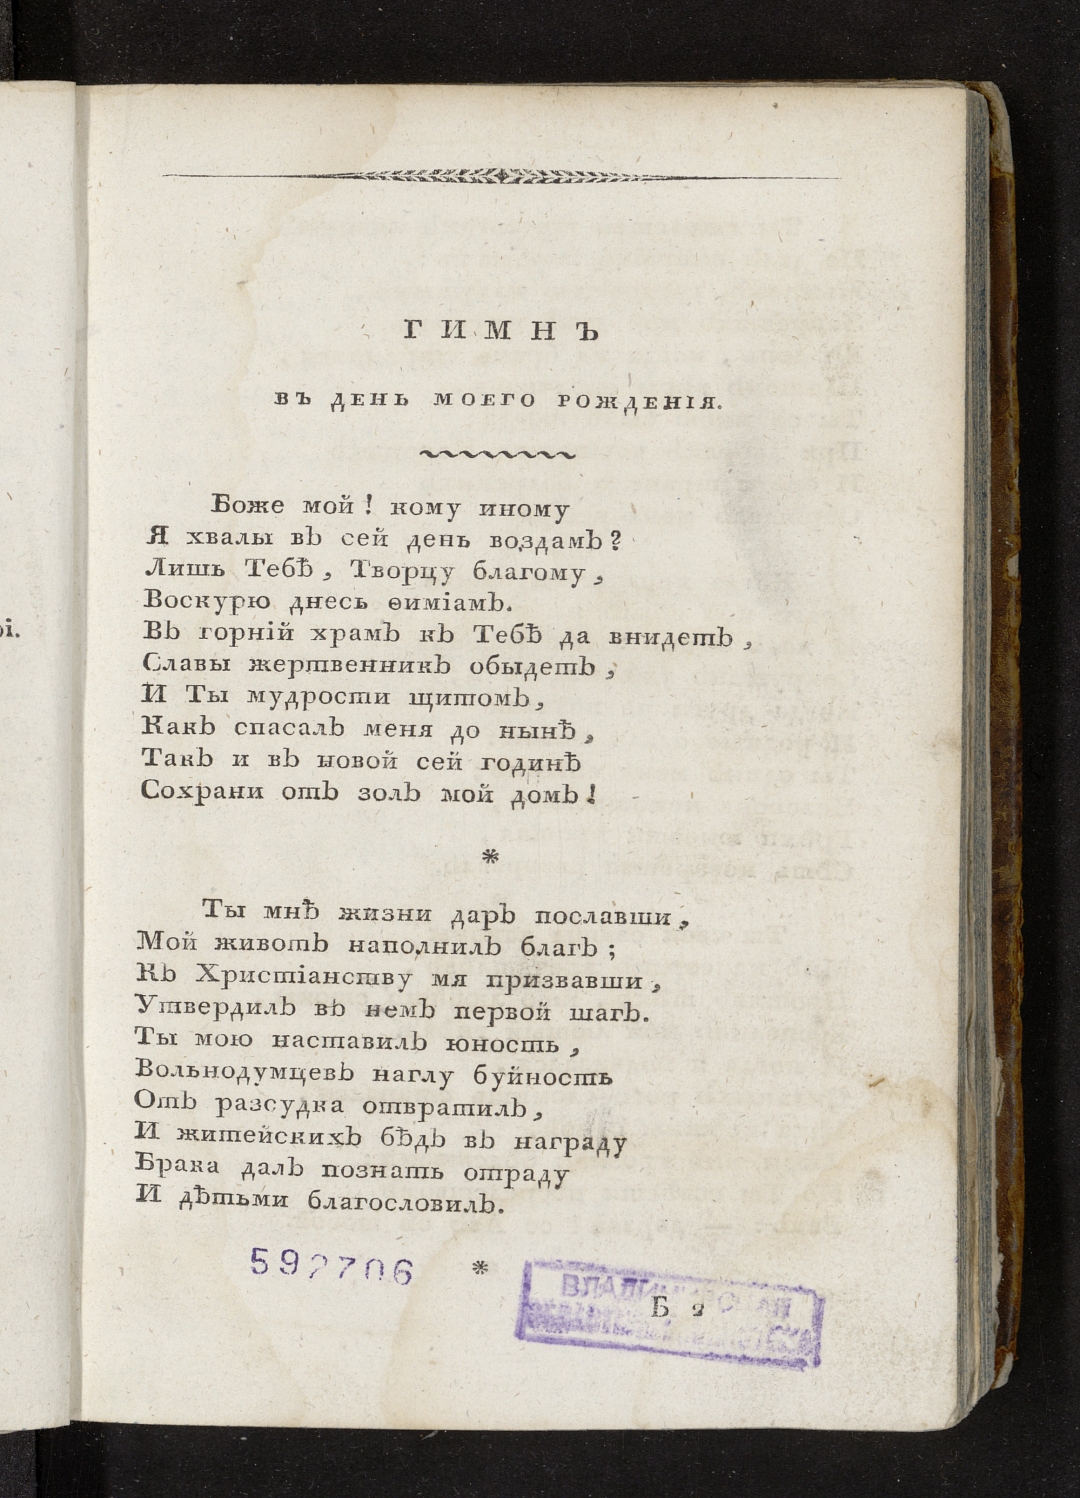 ГИМНЪ
ВЪ ДЕНЬ МОЕГО РОЖДЕНІЯ.
Боже мой! кому иному
Я хвалы въ сей день воздамъ?
Лишь Тебѣ, Творцу благому,
Воскурю днесь ѳиміамъ.
Въ горній храмъ къ Тебѣ да внидетъ,
Славы жертвенникъ обыдетъ,
И Ты мудрости щитомъ,
Какъ спасалъ меня до нынѣ,
Такъ и въ новой сей годинѣ
Сохрани отъ золъ мой домъ!
*
Ты мнѣ жизни даръ пославши,
Мой животъ наполнилъ благъ;
Къ Христіанству мя призвавши,
Утвердилъ въ немъ первой шагъ.
Ты мою наставилъ юность,
Вольнодумцевъ наглу буйность
Отъ разсудка отвратилъ,
И житейскихъ бѣдъ въ награду
Брака далъ познать отраду
И дѣтьми благословилъ.
592706
*
Б 2